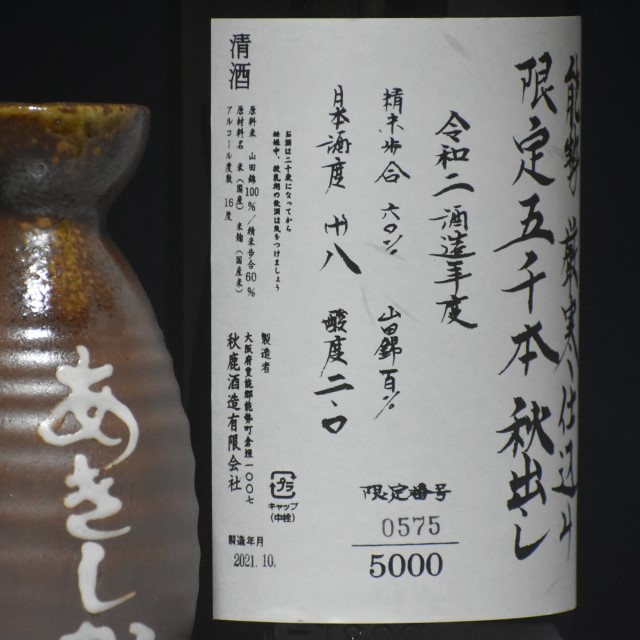 能勢 厳寒仕込み
限定五千本 秋出し
令和二酒造年度
精米歩合 六〇% 山田錦百%
日本酒度 廿八 酸度 二・〇
限定番号
0575
5000
清酒
お酒は二十歳になってから
妊娠中、授乳期の飲酒は気をつけましょう
原料米 山田錦100%/精米歩合60%
原材料名 米(国産) 米麹(国産米)
アルコール度数 16度
製造者
大阪府豊能郡能勢町倉垣一〇〇七
秋鹿酒造有限会社
プラ
キャップ
(中栓)
製造年月
2021.10.
あきしか